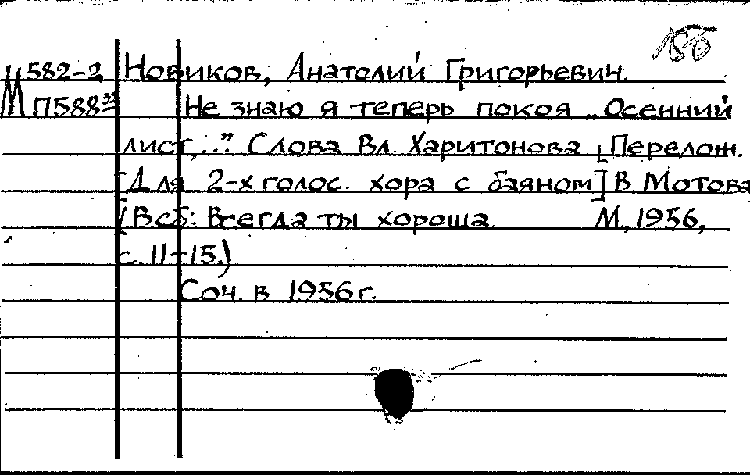 186
582-2 Новиков, Анатолий Григорьевич.
М П588 Не знаю я теперь покоя „Осенний
лист,..." Слова Вл. Харитонова [Перелож.
[Для 2-х голос. хора с баяном] В Мотова
[В сб: Всегда ты хороша. М, 1956,
с. 11-15.)
Соч. в 1956 г.